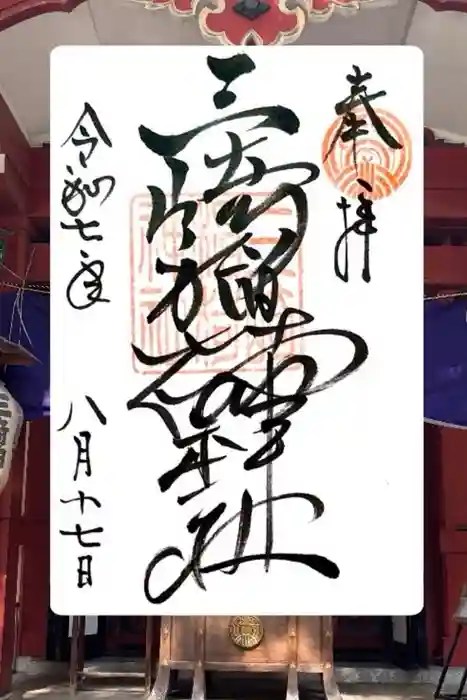 奉拝
三崎稲荷神社
令和七年 八月十七日